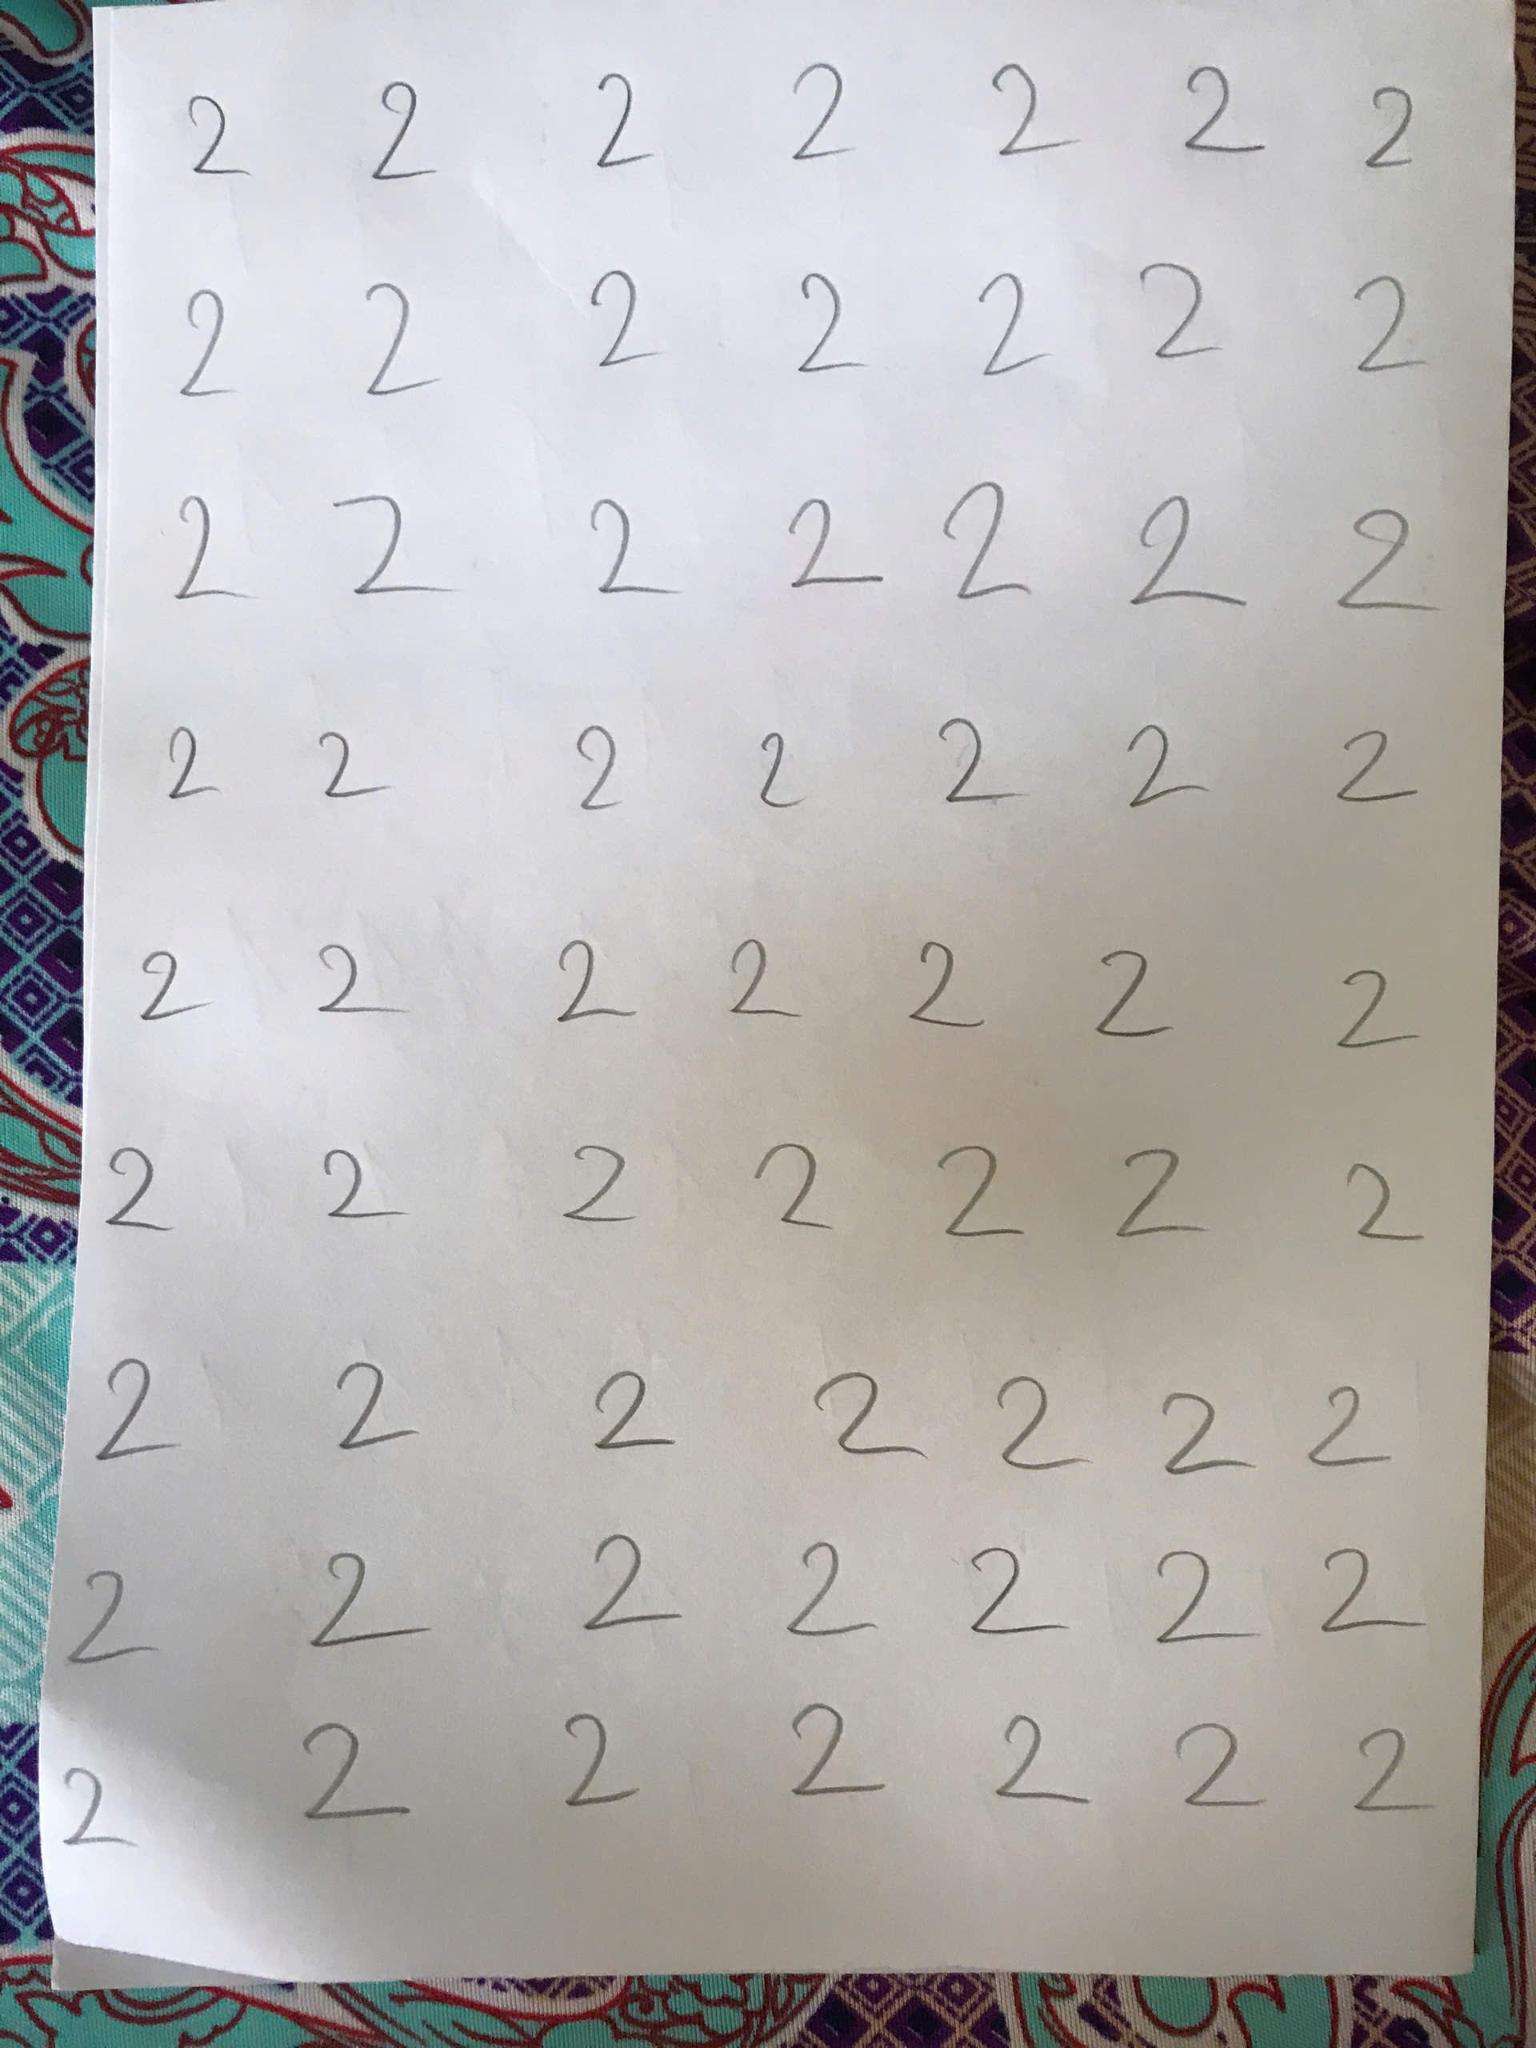 2 2 2 2 2 2 2
2 2 2 2 2 2 2
2 2 2 2 2 2 2
2 2 2 2 2 2 2
2 2 2 2 2 2 2
2 2 2 2 2 2 2
2 2 2 2 2 2 2
2 2 2 2 2 2 2
2 2 2 2 2 2 2